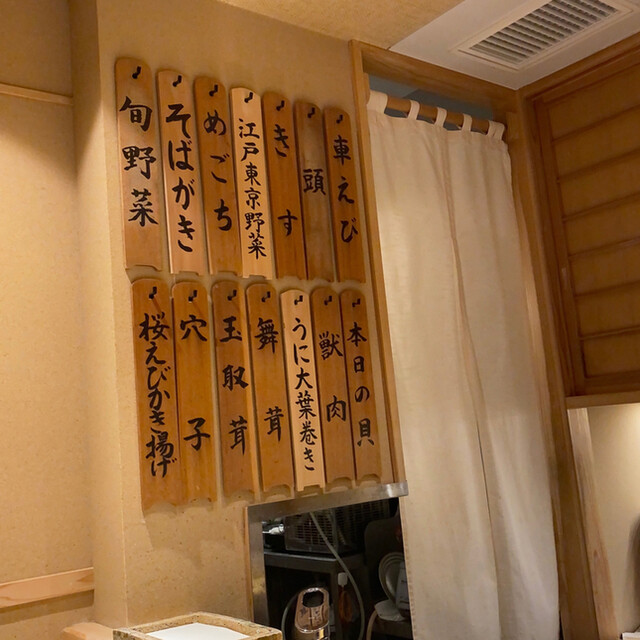 車えび
頭
きす
江戸東京野菜
めごち
そばがき
旬野菜
本日の貝
獣肉
うに大葉巻き
舞茸
玉取茸
穴子
桜えびかき揚げ